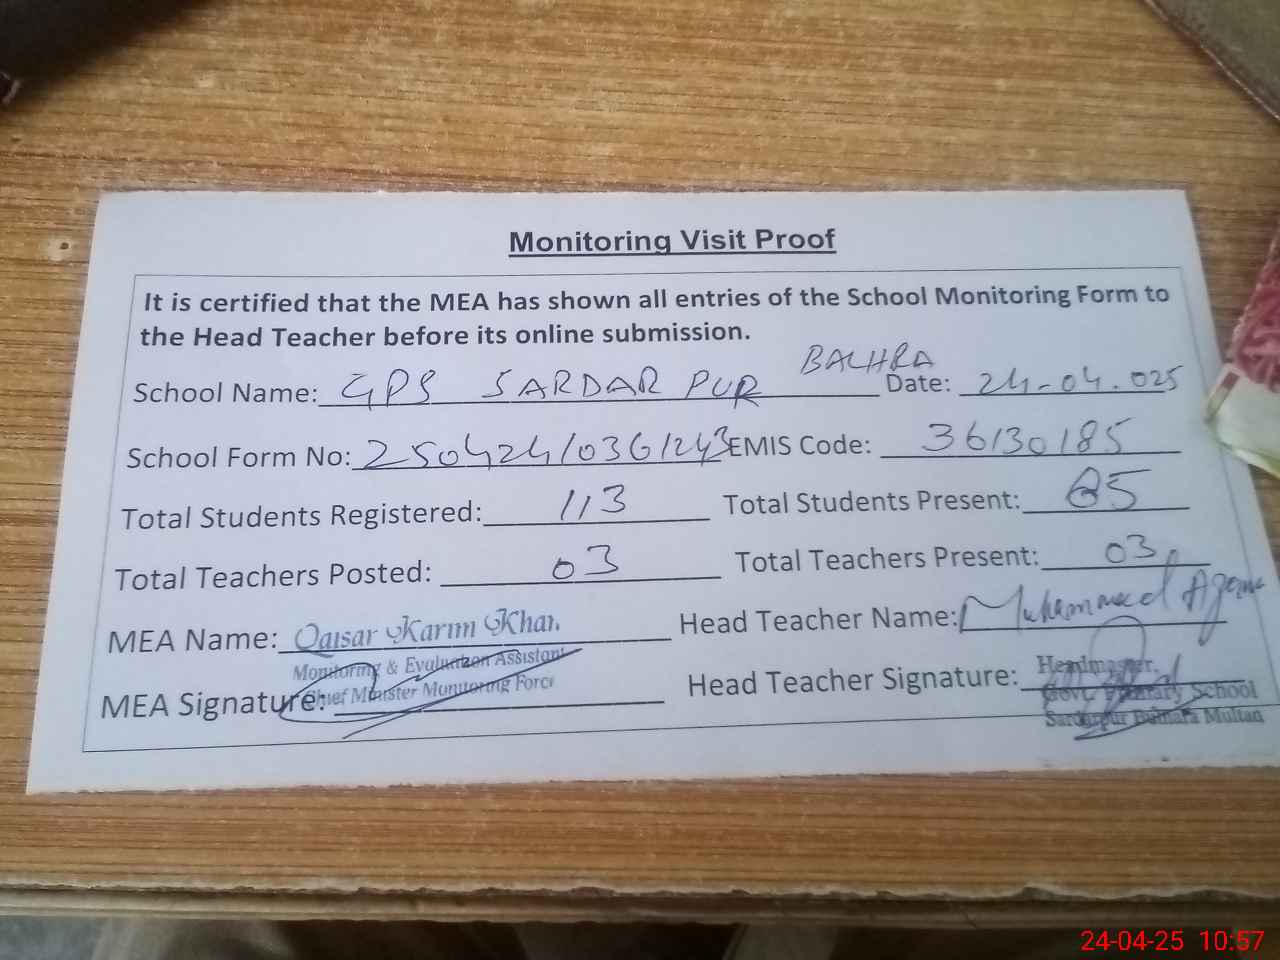 Monitoring Visit Proof
It is certified that the MEA has shown all entries of the School Monitoring Form to
the Head Teacher before its online submission.
School Name: GPS SARDAR PUR BALHRA Date: 24-04.025
School Form No: 250424/036/243 EMIS Code: 36130185
Total Students Registered: 113 Total Students Present: 85
Total Teachers Posted: 03 Total Teachers Present: 03
MEA Name: Qaisar Karim Khan Head Teacher Name: Muhammad
Monitoring & Evaluation Assistant
MEA Signature: Chief Minister Monitoring Force Head Teacher Signature: Headmaster,
Govt. Primary School
Sardarpur Multan
24-04-25 10:57